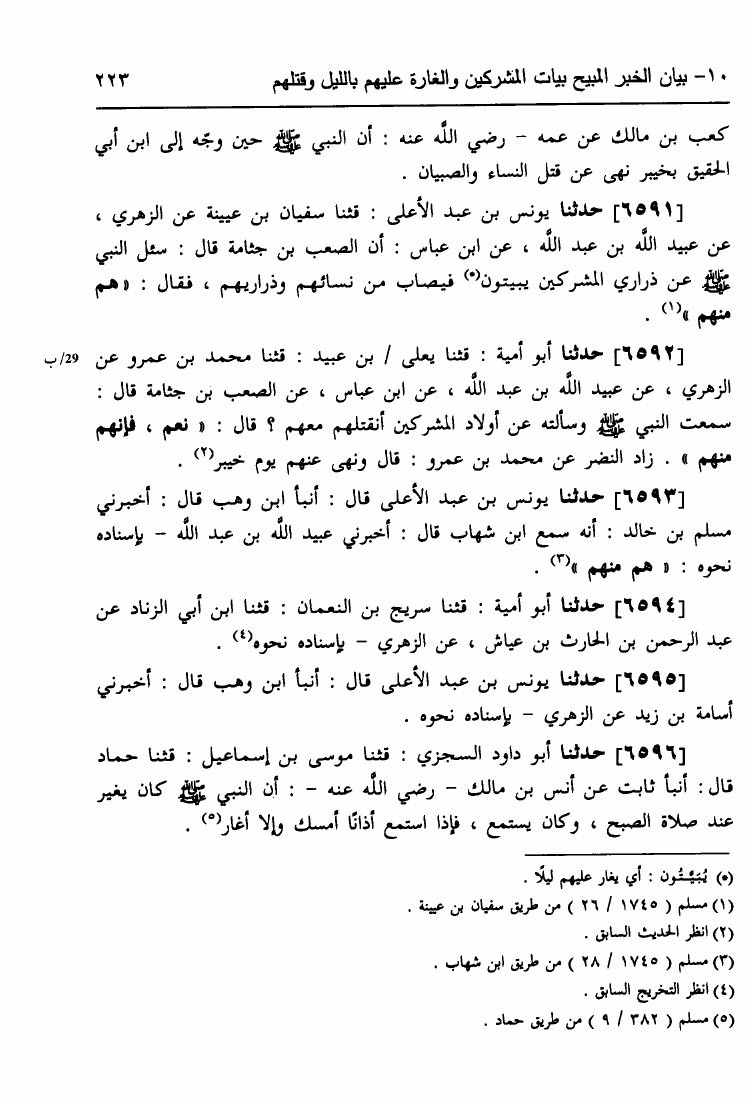 ١٠- بيان الخبر المبيح بيات المشركين والغارة عليهم بالليل وقتلهم ٢٢٣
كعب بن مالك عن عمه - رضي اللَّه عنه : أن النبي ﷺ حين وجّه إلى ابن أبي
الحقيق بخيبر نهى عن قتل النساء والصبيان .
[٦٥٩١] حدثنا يونس بن عبد الأعلى : قثنا سفيان بن عيينة عن الزهري ،
عن عبيد اللَّه بن عبد اللَّه ، عن ابن عباس : أن الصعب بن جثامة قال : سئل النبي
ﷺ عن ذراري المشركين يبيتون(*) فيصاب من نسائهم وذراريهم ، فقال : « هم
منهم »(١) .
[٦٥٩٢] حدثنا أبو أمية : قثنا يعلى / بن عبيد : قثنا محمد بن عمرو عن 29/ب
الزهري ، عن عبيد اللَّه بن عبد اللَّه ، عن ابن عباس ، عن الصعب بن جثامة قال :
سمعت النبي ﷺ وسألته عن أولاد المشركين أنقتلهم معهم ؟ قال : « نعم ، فإنهم
منهم » . زاد النضر عن محمد بن عمرو : قال ونهى عنهم يوم خيبر(٢) .
[٦٥٩٣] حدثنا يونس بن عبد الأعلى قال : أنبأ ابن وهب قال : أخبرني
مسلم بن خالد : أنه سمع ابن شهاب قال : أخبرني عبيد اللَّه بن عبد اللَّه - بإسناده
نحوه : « هم منهم »(٣) .
[٦٥٩٤] حدثنا أبو أمية : قثنا سريج بن النعمان : قثنا ابن أبي الزناد عن
عبد الرحمن بن الحارث بن عياش ، عن الزهري - بإسناده نحوه(٤) .
[٦٥٩٥] حدثنا يونس بن عبد الأعلى قال : أنبأ ابن وهب قال : أخبرني
أسامة بن زيد عن الزهري - بإسناده نحوه .
[٦٥٩٦] حدثنا أبو داود السجزي : قثنا موسى بن إسماعيل : قثنا حماد
قال : أنبأ ثابت عن أنس بن مالك - رضي اللَّه عنه - : أن النبي ﷺ كان يغير
عند صلاة الصبح ، وكان يستمع ، فإذا استمع أذانًا أمسك وإلا أغار(٥) .
(*) يُبَيَّتُون : أي يغار عليهم ليلًا .
(١) مسلم ( ١٧٤٥ / ٢٦ ) من طريق سفيان بن عيينة .
(٢) انظر الحديث السابق .
(٣) مسلم ( ١٧٤٥ / ٢٨ ) من طريق ابن شهاب .
(٤) انظر التخريج السابق .
(٥) مسلم ( ٣٨٢ / ٩ ) من طريق حماد .